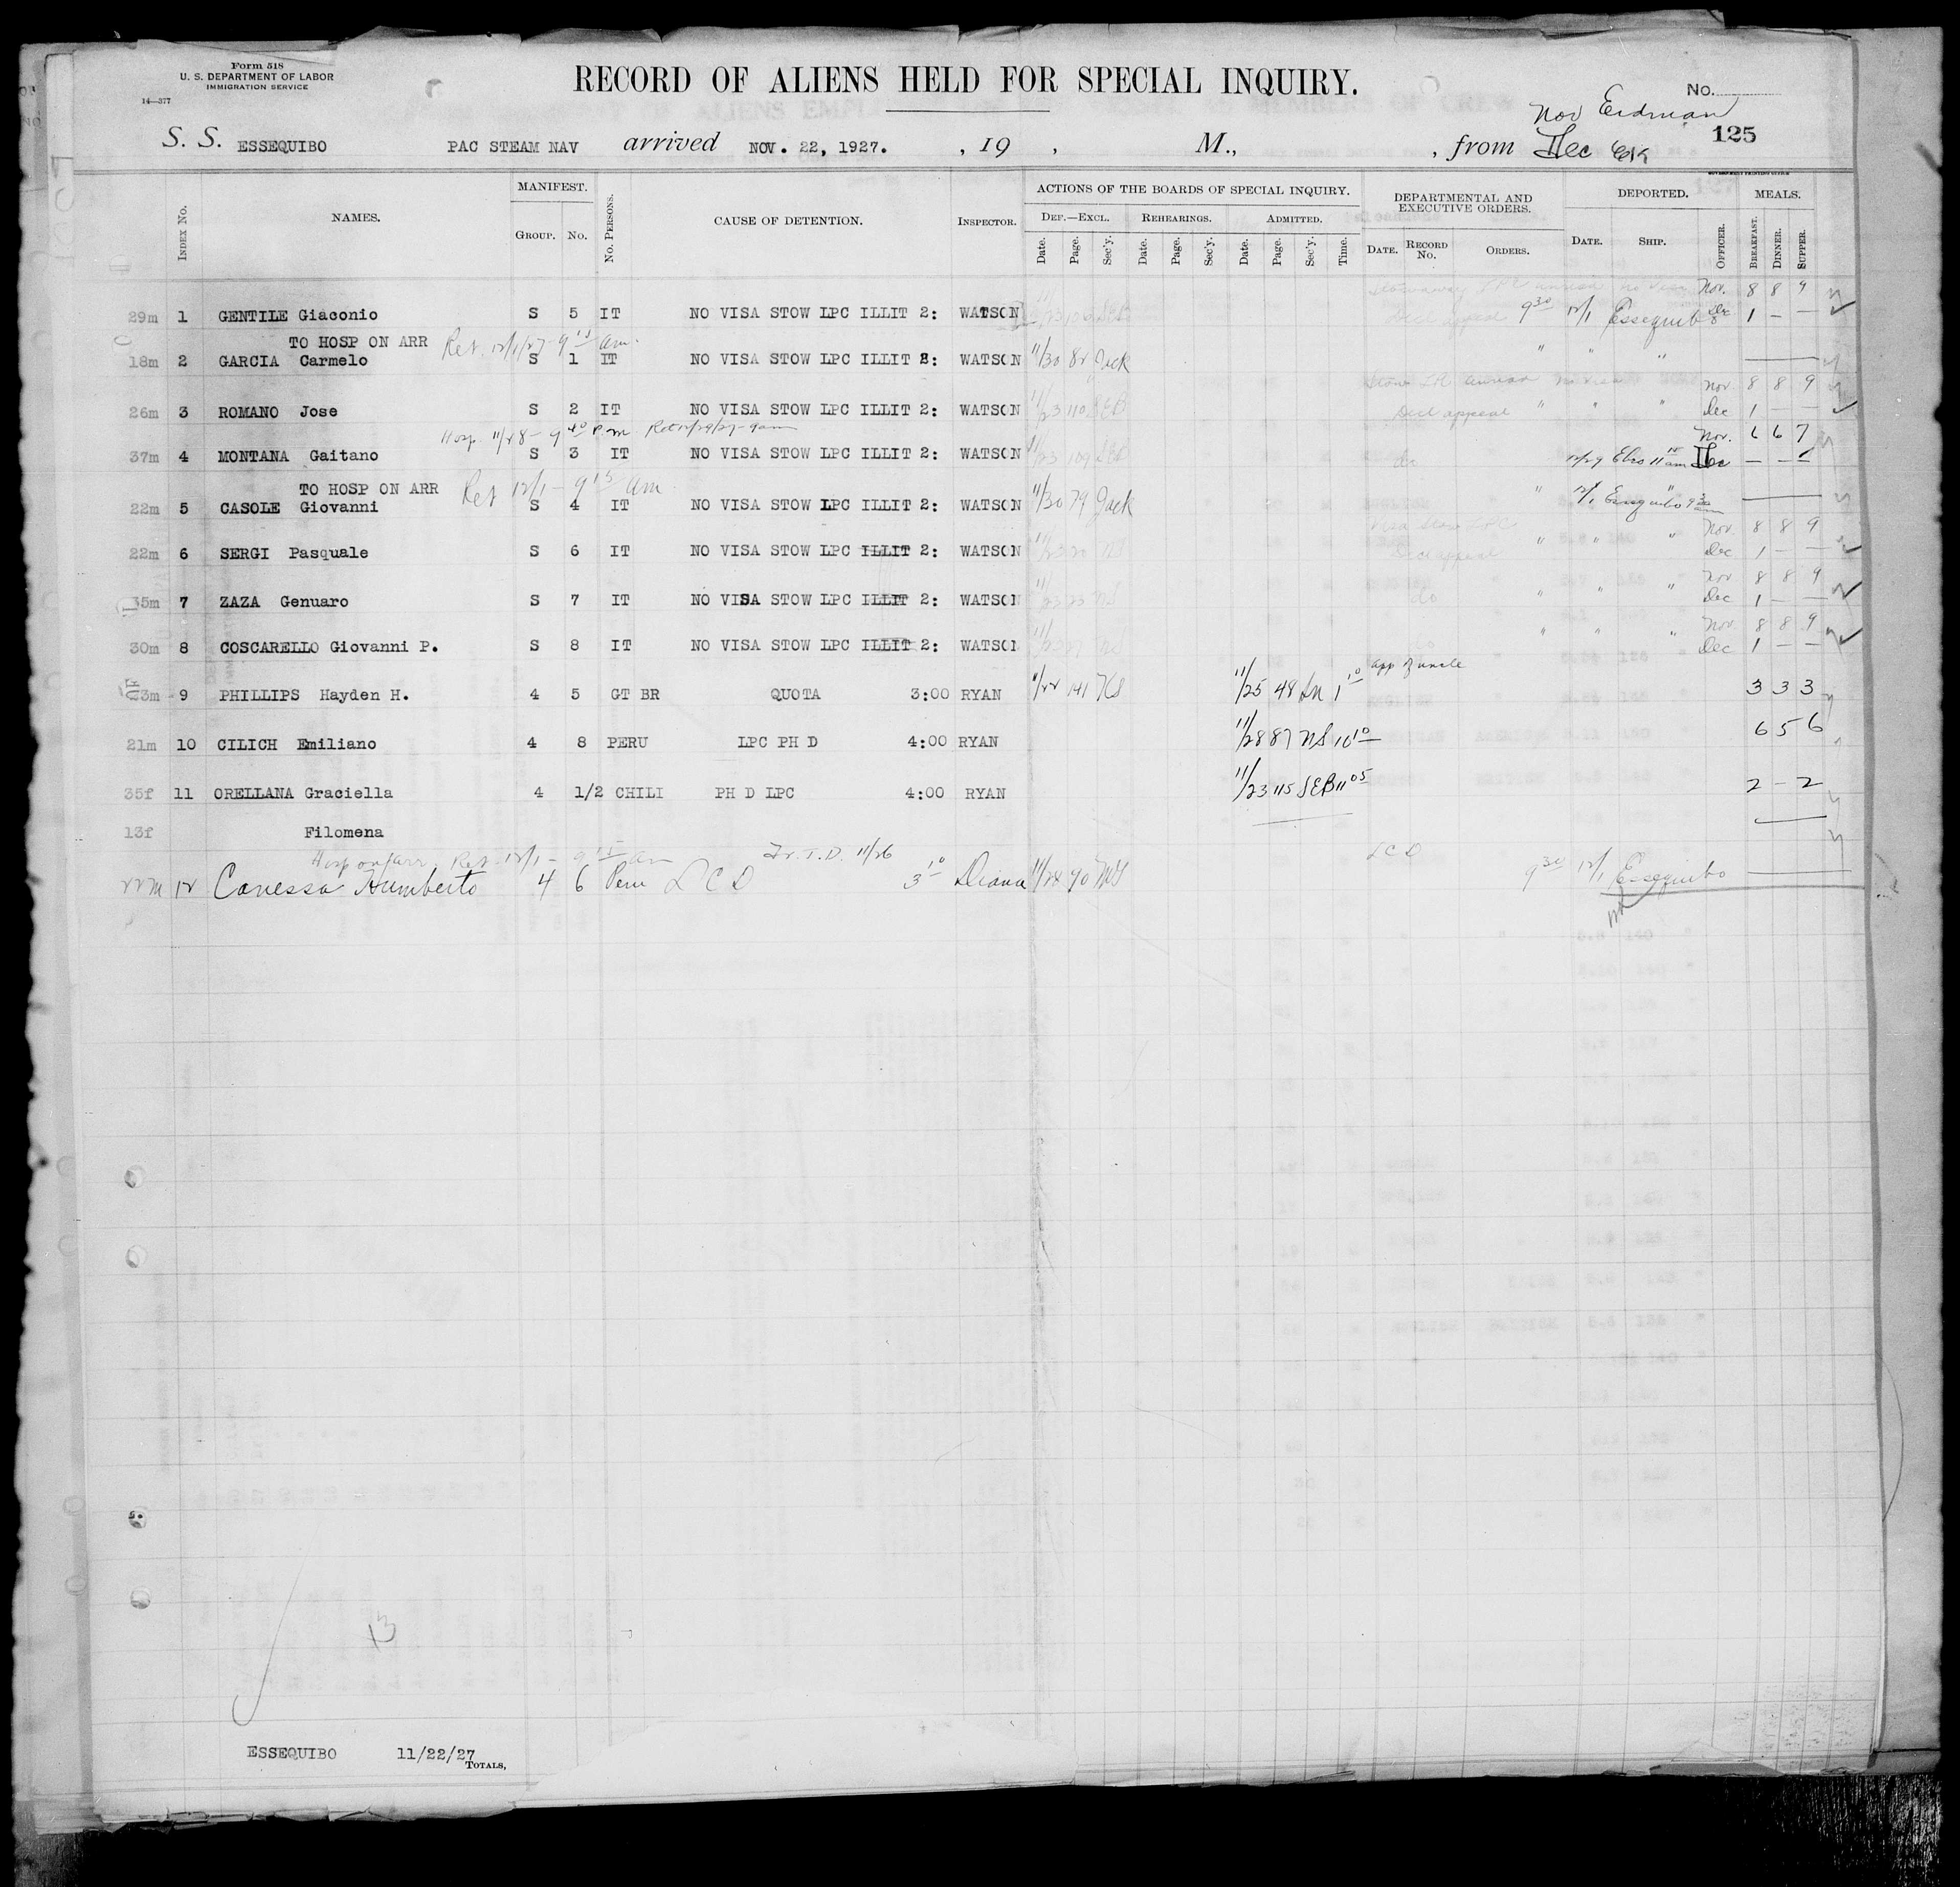 Form 518
U. S. DEPARTMENT OF LABOR
IMMIGRATION SERVICE
14—377
RECORD OF ALIENS HELD FOR SPECIAL INQUIRY.
No.
Nov Erdman
S. S. ESSEQUIBO PAC STEAM NAV arrived NOV. 22, 1927. , 19 , M., , from Dec
125
INDEX No. NAMES. MANIFEST. GROUP. No. No. PERSONS. CAUSE OF DETENTION. INSPECTOR. ACTIONS OF THE BOARDS OF SPECIAL INQUIRY. DEF.—EXCL. Date. Page. Sec'y. REHEARINGS. Date. Page. Sec'y. ADMITTED. Date. Page. Sec'y. Time. DEPARTMENTAL AND EXECUTIVE ORDERS. DATE. RECORD No. ORDERS. DEPORTED. DATE. SHIP. OFFICER. MEALS. BREAKFAST. DINNER. SUPPER.
Nov. 8 8 9
29m 1 GENTILE Giaconio S 5 IT NO VISA STOW LPC ILLIT 2: WATSON 9 30 12/1 Essequibo Dec 1 — —
TO HOSP ON ARR Ret 12/1/27 - 9 15 am.
18m 2 GARCIA Carmelo S 1 IT NO VISA STOW LPC ILLIT 2: WATSON 11/30 82 Jack " " "
Nov 8 8 9
26m 3 ROMANO Jose S 2 IT NO VISA STOW LPC ILLIT 2: WATSON 11/23 110 SEB Decl appeal " " " Dec 1 — —
Hosp. 11/28 - 9 40 P.m Ret 12/29/27 - 9 am Nov. 6 6 7
37m 4 MONTANA Gaitano S 3 IT NO VISA STOW LPC ILLIT 2: WATSON 11/23 109 SEB do 12/29 Ebro 11 am Dec — — 1
TO HOSP ON ARR Ret 12/1 - 9 15 am
22m 5 CASOLE Giovanni S 4 IT NO VISA STOW LPC ILLIT 2: WATSON 11/30 79 Jack " 12/1 Essequibo 9 30 am
Nov. 8 8 9
22m 6 SERGI Pasquale S 6 IT NO VISA STOW LPC ILLIT 2: WATSON Decl appeal " " " Dec 1 — —
Nov 8 8 9
35m 7 ZAZA Genuaro S 7 IT NO VISA STOW LPC ILLIT 2: WATSON do " " " Dec 1 — —
Nov. 8 8 9
30m 8 COSCARELLO Giovanni P. S 8 IT NO VISA STOW LPC ILLIT 2: WATSON " " " Dec 1 — —
23m 9 PHILLIPS Hayden H. 4 5 GT BR QUOTA 3:00 RYAN 11/22 141 NS 11/25 48 1 10 app of uncle 3 3 3
21m 10 CILICH Emiliano 4 8 PERU LPC PH D 4:00 RYAN 11/28 87 NS 10 10 6 5 6
35f 11 ORELLANA Graciella 4 1/2 CHILI PH D LPC 4:00 RYAN 11/23 115 SEB 11 05 2 — 2
13f Filomena
Hosp on arr. Ret 12/1 - 9 15 am Fr. T.D. 11/26 LCD
22m 12 Canessa Humberto 4 6 Peru L C D 3 10 Diana 11/28 90 9 30 12/1 Essequibo
13
ESSEQUIBO 11/22/27
TOTALS,